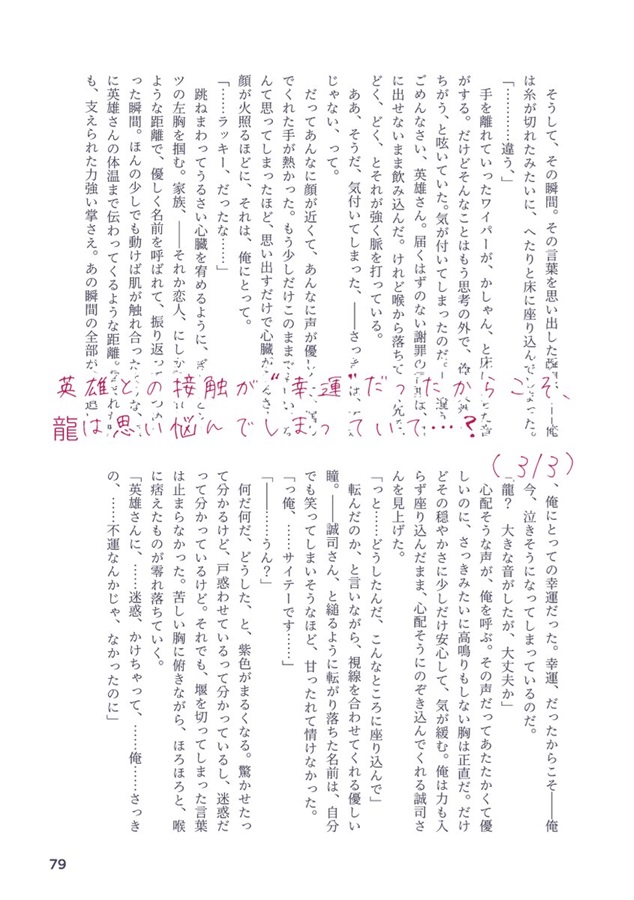 そうして、その瞬間。その言葉を思い出した
は糸が切れたみたいに、へたりと床に座り込んで
「…………違う、」
手を離れていったワイパーが、かしゃん、と床
がする。だけどそんなことはもう思考の外で、
ちがう、と呟いていた。気が付いてしまったのだ。
ごめんなさい、英雄さん。届くはずのない謝罪の
に出せないまま飲み込んだ。けれど喉から落ちて
どく、どく、とそれが強く脈を打っている。
ああ、そうだ、気付いてしまった、――さっき
じゃない、って。
だってあんなに顔が近くて、あんなに声が優し
でくれた手が熱かった。もう少しだけこのまま
んて思ってしまったほど、思い出すだけで心臓が
顔が火照るほどに、それは、俺にとって。
「……ラッキー、だったな……」
跳ねまわってうるさい心臓を宥めるように、
ツの左胸を掴む。家族、――それか恋人、にしか
ような距離で、優しく名前を呼ばれて、振り返
った瞬間。ほんの少しでも動けば肌が触れ合った
に英雄さんの体温まで伝わってくるような距離。
も、支えられた力強い掌さえ。あの瞬間の全部が
英雄との接触が“幸運”だったからこそ、
龍は思い悩んでしまっていて…?
(3/3)
、俺にとっての幸運だった。幸運、だったからこそ――俺
今、泣きそうになってしまっているのだ。
「龍?　大きな音がしたが、大丈夫か」
心配そうな声が、俺を呼ぶ。その声だってあたたかくて優
しいのに、さっきみたいに高鳴りもしない胸は正直だ。だけ
どその穏やかさに少しだけ安心して、気が緩む。俺は力も入
らず座り込んだまま、心配そうにのぞき込んでくれる誠司さ
んを見上げた。
「っと……どうしたんだ、こんなところに座り込んで」
転んだのか、と言いながら、視線を合わせてくれる優しい
瞳。――誠司さん、と縋るように転がり落ちた名前は、自分
でも笑ってしまいそうなほど、甘ったれて情けなかった。
「っ俺、……サイテーです……」
「――……うん?」
何だ何だ、どうした、と、紫色がまるくなる。驚かせたっ
て分かるけど、戸惑わせているって分かっているし、迷惑だ
って分かっているけど。それでも、堰を切ってしまった言葉
は止まらなかった。苦しい胸に俯きながら、ほろほろと、喉
に痞えたものが零れ落ちていく。
「英雄さんに、……迷惑、かけちゃって、……俺……さっき
の、……不運なんかじゃ、なかったのに」
79